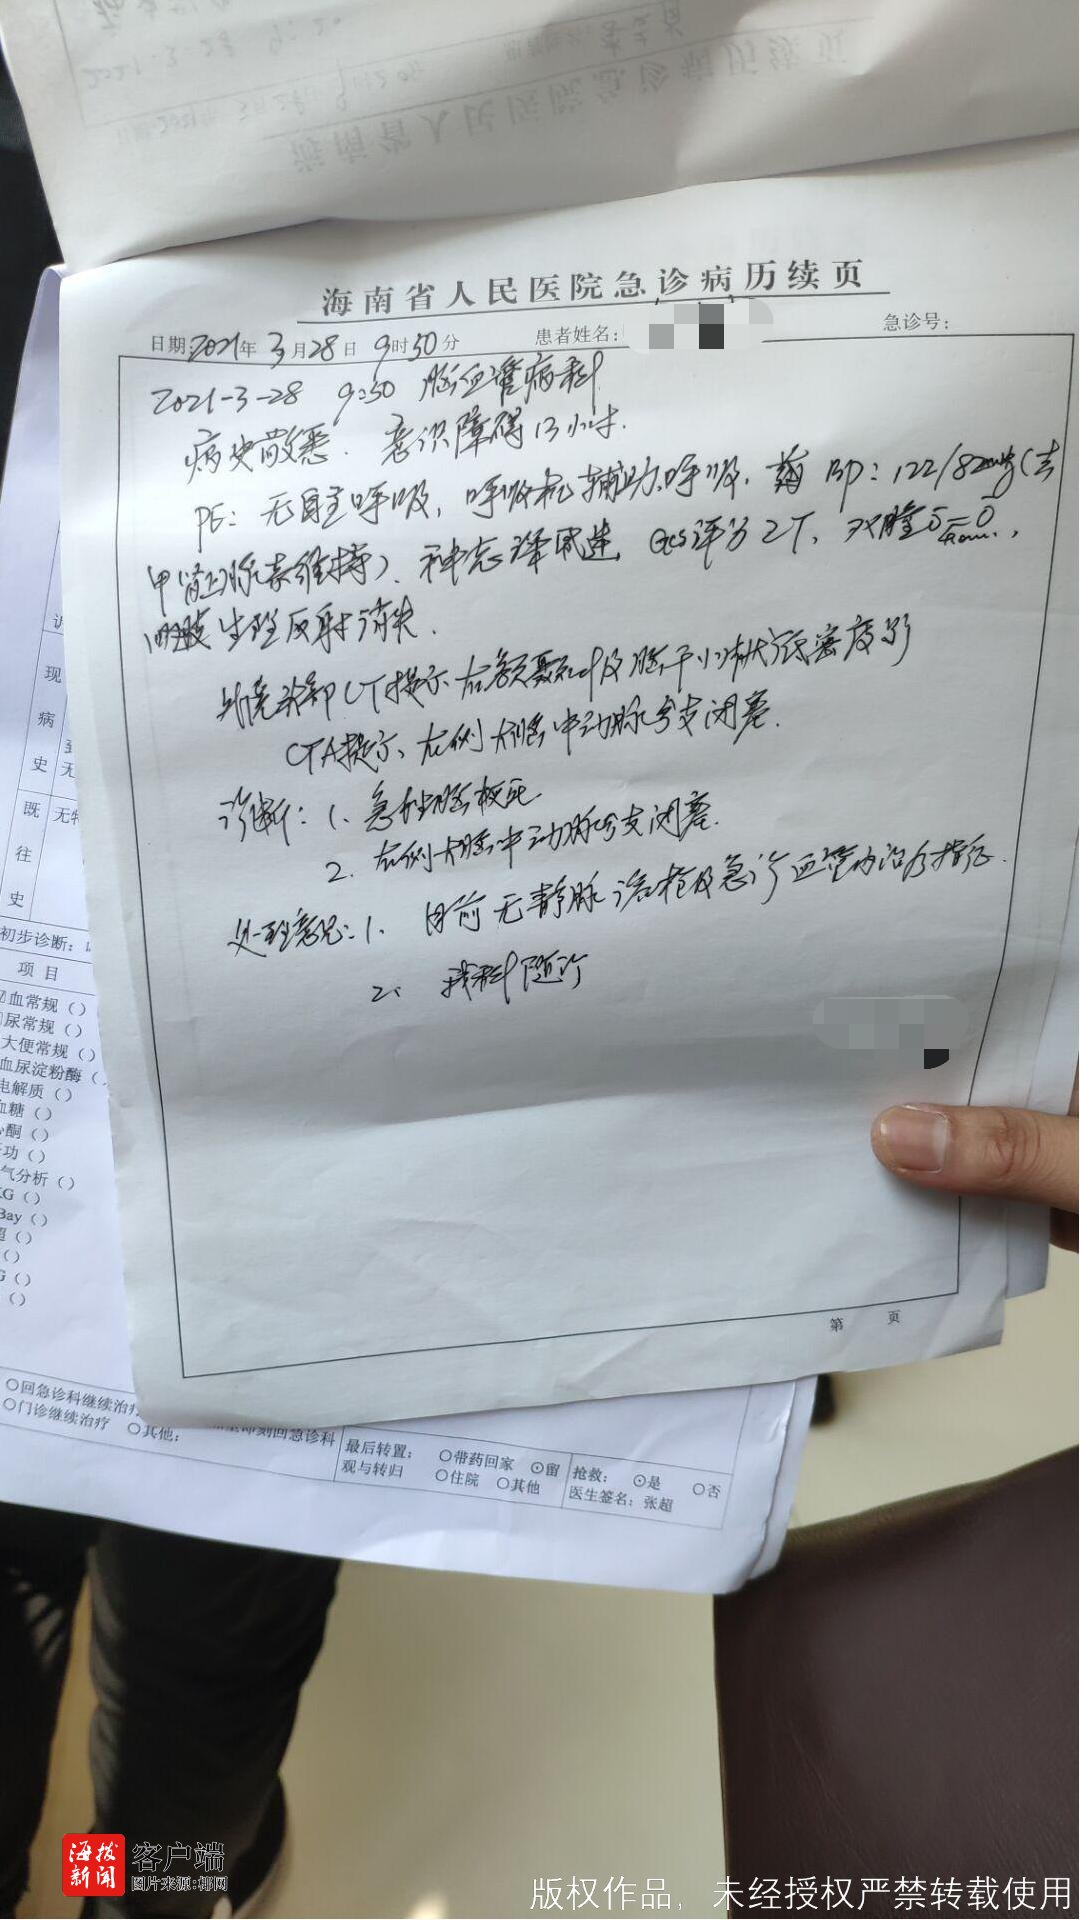 海南省人民医院急诊病历续页
日期:2021年3月28日9时50分 患者姓名: 急诊号:
2021-3-28 9:50 脑血管病科
病史敬悉. 意识障碍13小时.
PE: 无自主呼吸, 呼吸机辅助呼吸, BP: 122/82mmHg(去
甲肾上腺素维持). 神志深昏迷, GCS评分2T, 双瞳5mm,
生理反射消失.
头部CT提示右额颞叶及脑干小片状低密度影
CTA提示左侧大脑中动脉分支闭塞.
诊断: 1、急性脑梗死
2. 左侧大脑中动脉分支闭塞.
处理意见: 1、目前无静脉溶栓及急诊血管内治疗指征.
2、我科随诊
第 页
现
病
史 无
既 无特
往
史
初步诊断:
项目
血常规()
尿常规()
大便常规()
血尿淀粉酶()
电解质()
血糖()
酮()
功()
气分析()
G()
Bay()
()
()
G()
()
○回急诊科继续治疗 即刻回急诊科
○门诊继续治疗 ○其他:
最后转置: ○带药回家 ⊙留
观与转归 ○住院 ○其他
抢救: ⊙是 ○否
医生签名: 张超
海拔新闻 客户端
图片来源:椰网
版权作品，未经授权严禁转载使用